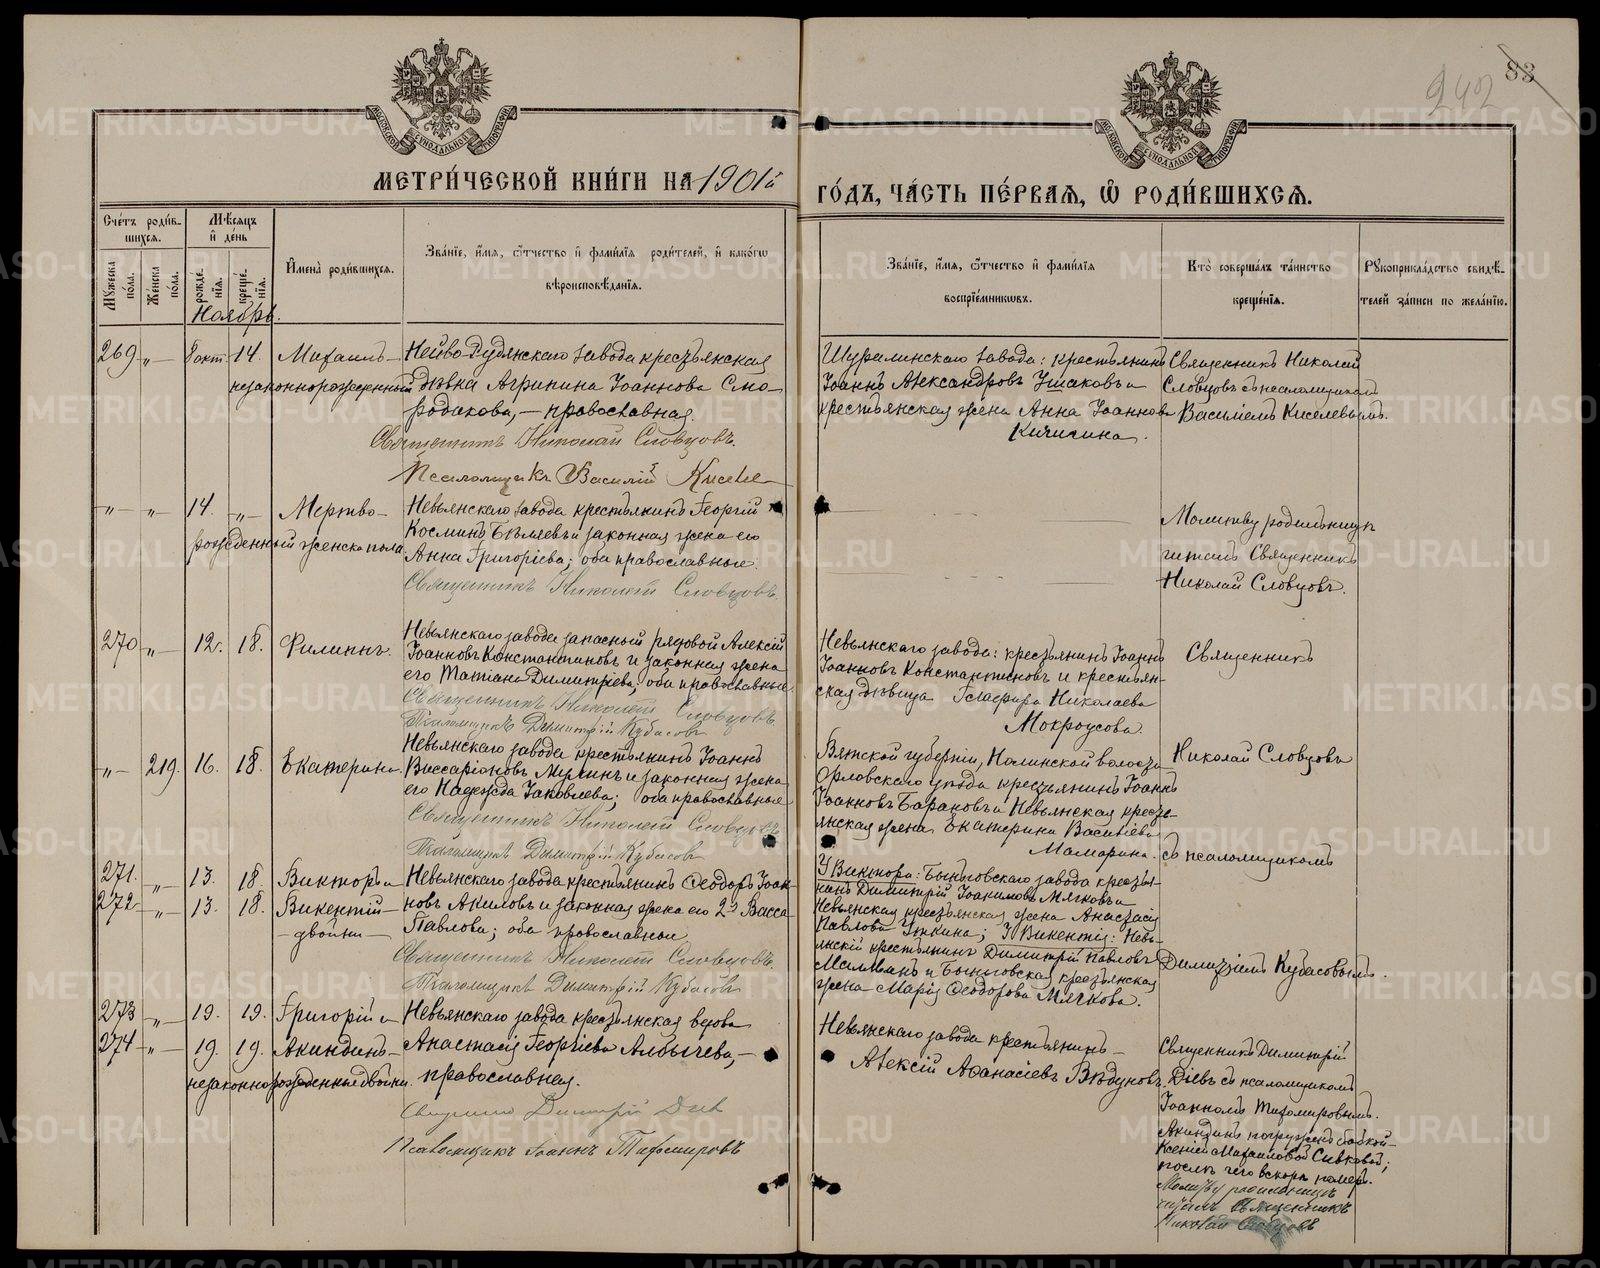 242
83
МЕТРИ́ЧЕСКОЙ КНИ́ГИ НА 1901й
ГО́ДЪ, ЧА́СТЬ ПЕ́РВАѦ, Ѡ РОДИ́ВШИХСѦ.
Сче́тъ роди́в-
шихсѧ.
Мѣ́сѧцъ
и де́нь
Му́жеска по́ла.
Же́нска по́ла.
рожде́нїѧ.
креще́нїѧ.
И́мена̀ роди́вшихсѧ.
Зва́нїе, и́мѧ, ѻ҆́тчество и фами́лїѧ роди́телей, и како́гѡ
вѣроисповѣ́данїѧ.
Зва́нїе, и́мѧ, ѻ҆́тчество и фами́лїѧ
воспрїе́мникѡвъ.
Кто̀ соверша́лъ та́инство
креще́нїѧ.
Рꙋкоприкла́дство свидѣ́-
телей за́писи по жела́нїю.
Ноябрь.
269 „ 8 окт. 14. Михаилъ
незаконнорожденный
Нейво-Рудянскаго завода крестьянская
дѣвка Агрипина Іоаннова Смо-
родакова, – православная
Священникъ Николай Словцовъ.
Псаломщикъ Василій Киселе
Шуралинскаго завода: крестьянинъ
Іоаннъ Александровъ Ушаковъ и
крестьянская жена Анна Іоаннова
Кичигина.
Священникъ Николай
Словцовъ съ псаломщикомъ
Василіемъ Киселевымъ.
„ „ 14. „ Мертво-
рожденный женска пола
Невьянскаго завода крестьянинъ Георгій
Косминъ Бѣляевъ и законная жена его
Анна Григоріева; оба православные.
Священникъ Николай Словцовъ.
Молитву родильницѣ
читалъ Священникъ
Николай Словцовъ.
270 „ 12. 18. Филиппъ.
Невьянскаго завода запасный рядовой Алексій
Іоанновъ Константиновъ и законная жена
его Татіана Димитріева, оба православные
Священникъ Николай Словцовъ
Псаломщикъ Димитрій Кубасовъ
Невьянскаго завода: крестьянинъ Іоаннъ
Іоанновъ Константиновъ и крестьян-
ская дѣвица Глафира Николаева
Мокроусова.
Священникъ
„ 219. 16. 18. Екатерина
Невьянскаго завода крестьянинъ Іоаннъ
Виссаріоновъ Мухинъ и законная жена
его Надежда Іаковлева; оба православные
Священникъ Николай Словцовъ
Псаломщикъ Димитрій Кубасовъ
Вятской губерніи, Нолинской волости
Орловскаго уѣзда крестьянинъ Іоаннъ
Іоанновъ Барановъ и Невьянская кресть-
янская жена Екатерина Васильева
Мамарина.
Николай Словцовъ
съ псаломщикомъ
271. „ 13. 18 Викторъ и
272 „ 13. 18. Викентій
двойни
Невьянскаго завода крестьянинъ Ѳеодоръ Іоан-
новъ Акиловъ и законная жена его 2я Васса
Павлова; оба православные
Священникъ Николай Словцовъ.
Псаломщикъ Димитрій Кубасовъ
У Виктора: Быньговскаго завода кресть-
нинъ Димитрій Іоакимовъ Мячковъ и
Невьянская крестьянская жена Анастасія
Павлова Уткина; У Викентія: Невь-
янскій крестьянинъ Димитрій Павловъ
и Быньговская крестьянская
жена Марія Ѳеодорова Мячкова.
Димитріемъ Кубасовымъ.
273 „ 19. 19. Григорій и
274 „ 19. 19. Акиндинъ
незаконнорожденные двойни.
Невьянскаго завода крестьянская вдова
Анастасія Георгіева Албычева, –
православная.
Священникъ Димитрій Діевъ
Псаломщикъ Іоаннъ Тихомировъ
Невьянскаго завода крестьянинъ
Алексій Аѳанасіевъ Вѣдуновъ.
Священникъ Димитрій
Діевъ съ псаломщикомъ
Іоанномъ Тихомировымъ.
Акиндинъ погруженъ бабкой
Ксеніей Михаиловой Сивковой;
послѣ чего вскорѣ померъ.
Молитву родильницѣ
читалъ Священникъ
Николай Словцовъ
METRIKI.GASO-URAL.RU